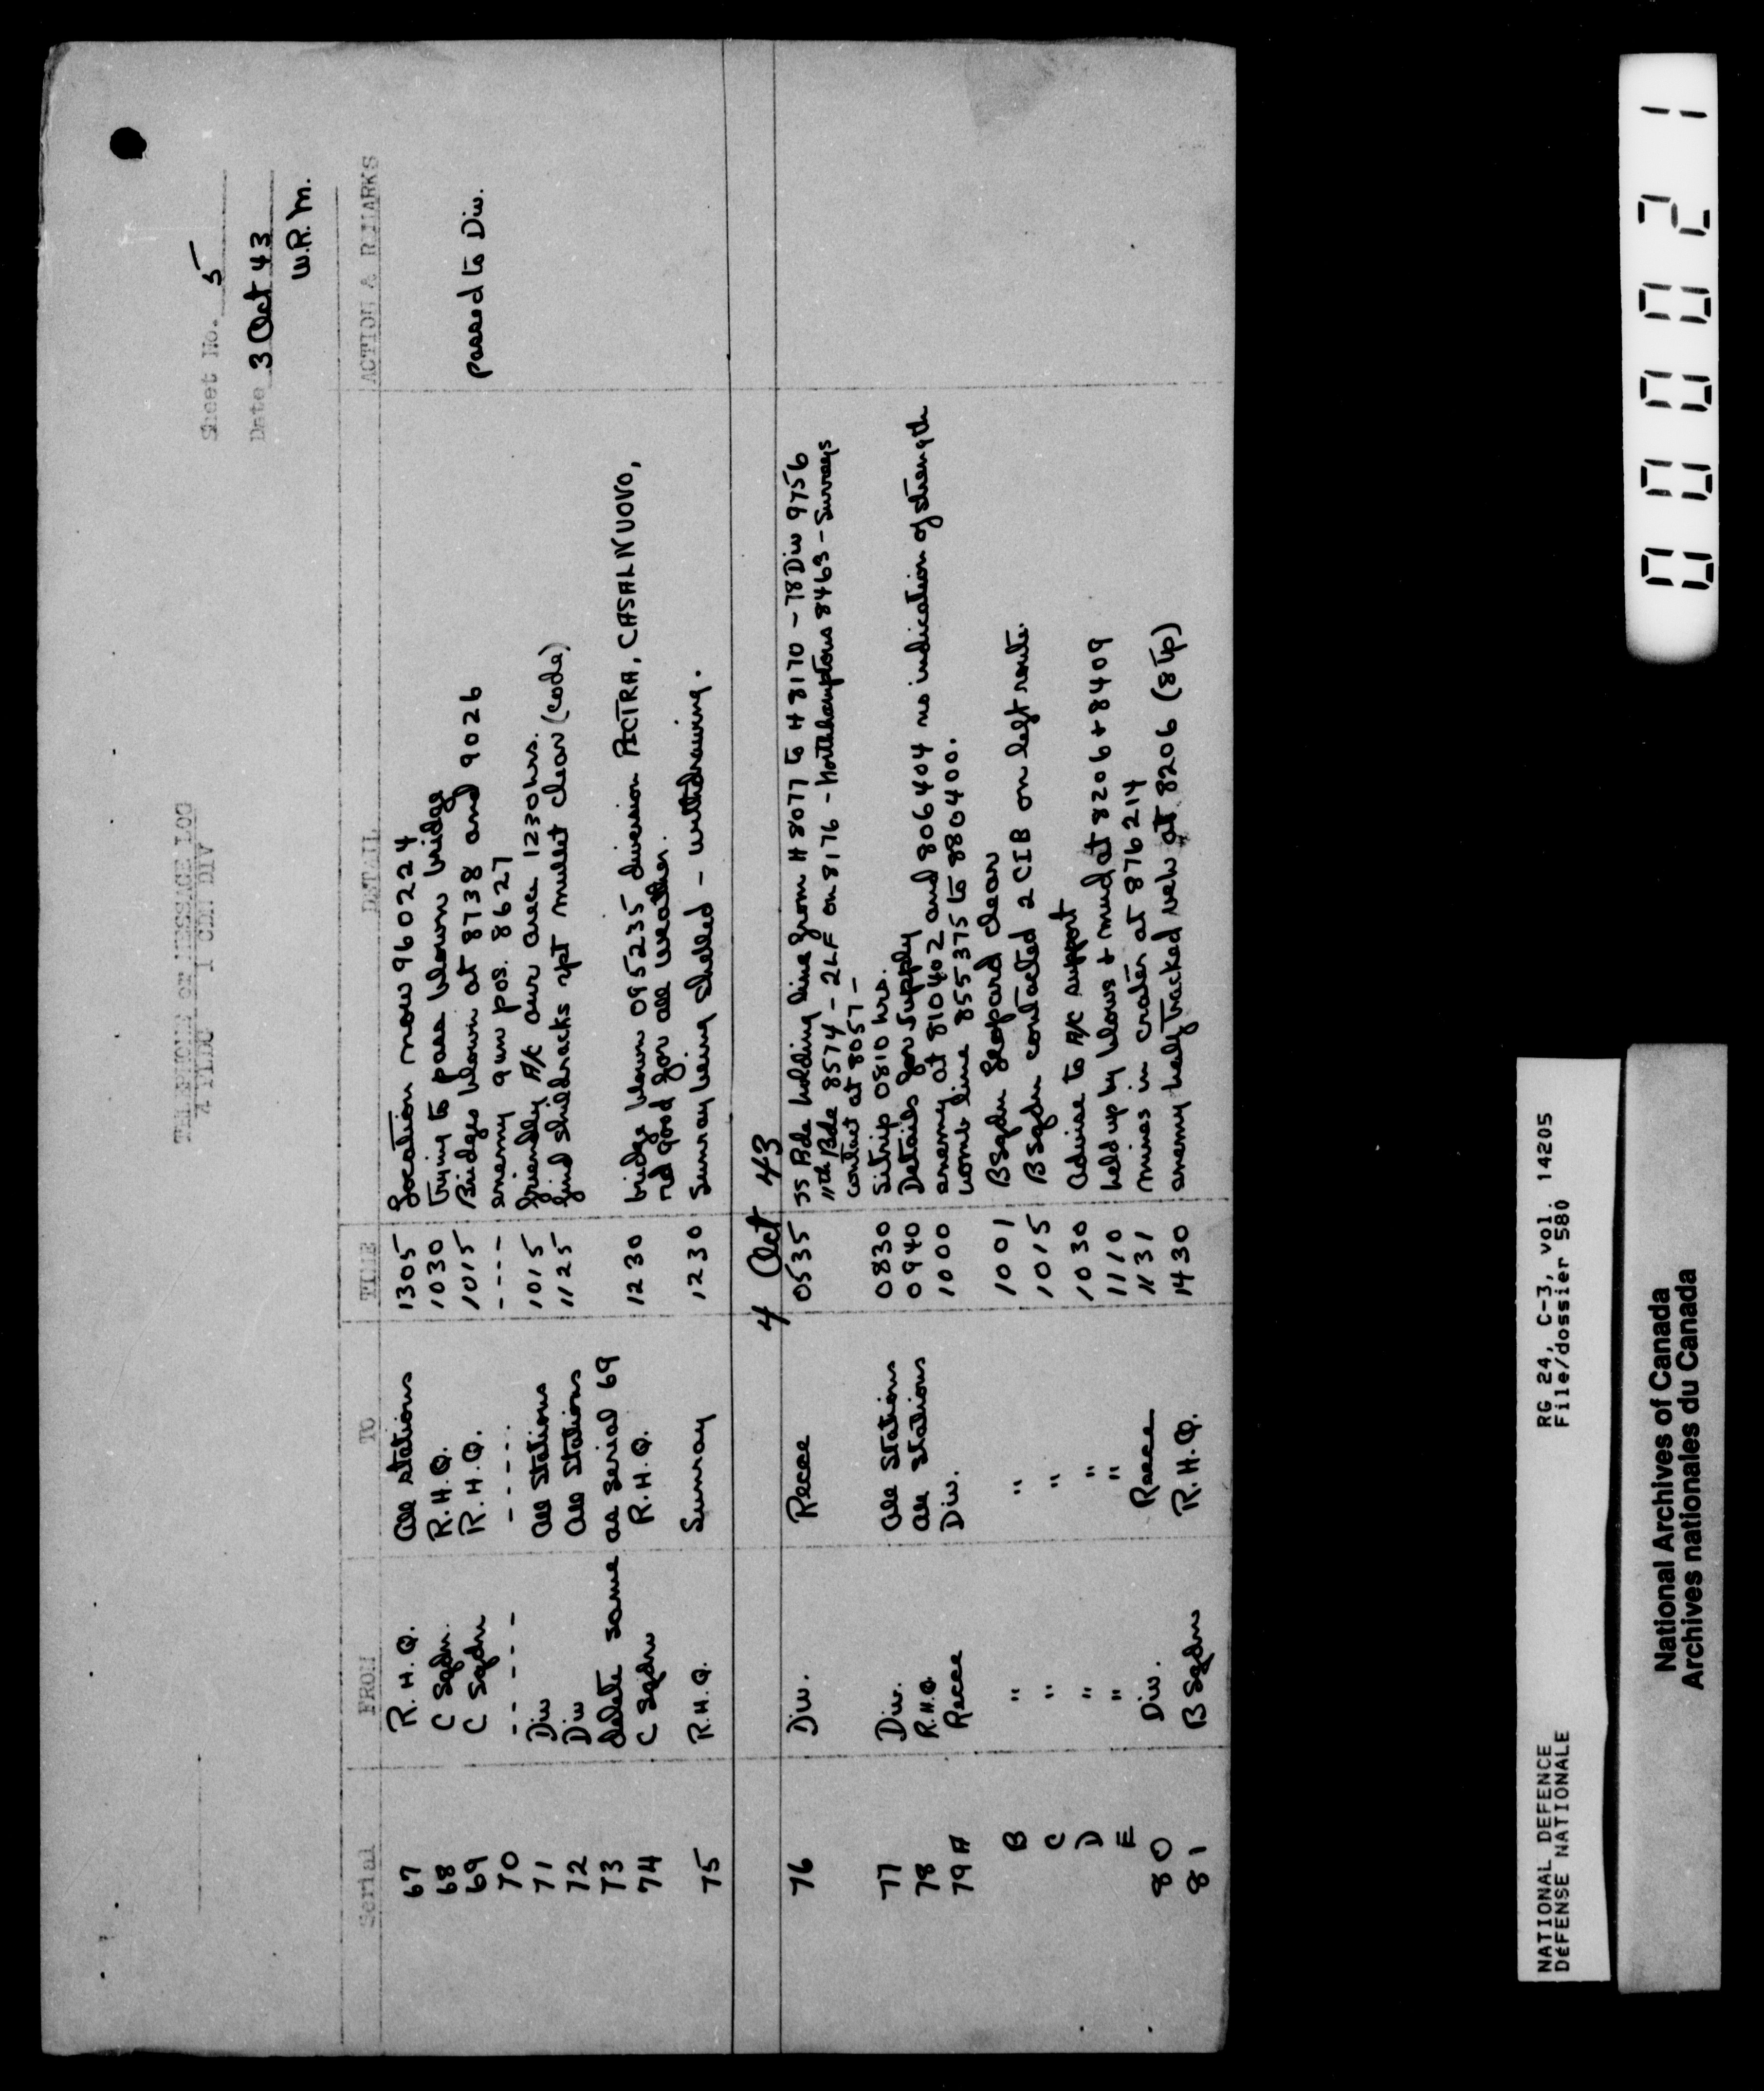 TELEPHONE OR MESSAGE LOG
4 PLDG 1 CDN DIV
Sheet No. 5
Date 3 Oct 43
W.R.M.
Serial FROM TO TIME DETAIL ACTION & REMARKS
67 R.H.Q. All stations 1305 Location now 960224
68 C Sqdn. R.H.Q. 1030 trying to pass blown bridge
69 C Sqdn R.H.Q. 1015 Bridges blown at 8738 and 9026 passed to Div.
70 ----- ----- ---- enemy gun pos. 8627
71 Div All Stations 1015 friendly A/C our area 1230 hrs.
72 Div All Stations 1125 find shildracks rpt mullet clear (code)
73 delete same as serial 69
74 C Sqdn R.H.Q. 1230 bridge blown 095235 diversion PICTRA, CASALNUOVO,
rd good for all weather.
75 R.H.Q. Sunray 1230 Sunray being shelled - withdrawing.
4 Oct 43
76 Div. Recce 0535 SS Bde holding line from H 8077 to H 8170 - 78 Div 9756
11th Bde 8574 - 2LF on 8176 - Northhamptons 8463 - Surreys
contact at 8057 -
77 Div. All Stations 0830 Sitrip 0810 hrs.
78 R.H.Q. All Stations 0940 Details for supply
79 A Recce Div. 1000 enemy at 810402 and 806404 no indication of strength
womb line 855375 to 880400.
B " " 1001 B Sqdn Leopard clear
C " " 1015 B Sqdn contacted 2 CIB on left route.
D " " 1030 Advise to A/C support
E " " 1110 held up by blows + mud at 8206 + 8409
80 Div. Recce 1131 mines in crater at 876214
81 B Sqdn R.H.Q. 1430 enemy half tracked veh at 8206 (8 tp)
000021
NATIONAL DEFENCE RG 24, C-3, vol. 14205
DéFENSE NATIONALE File/dossier 580
National Archives of Canada
Archives nationales du Canada